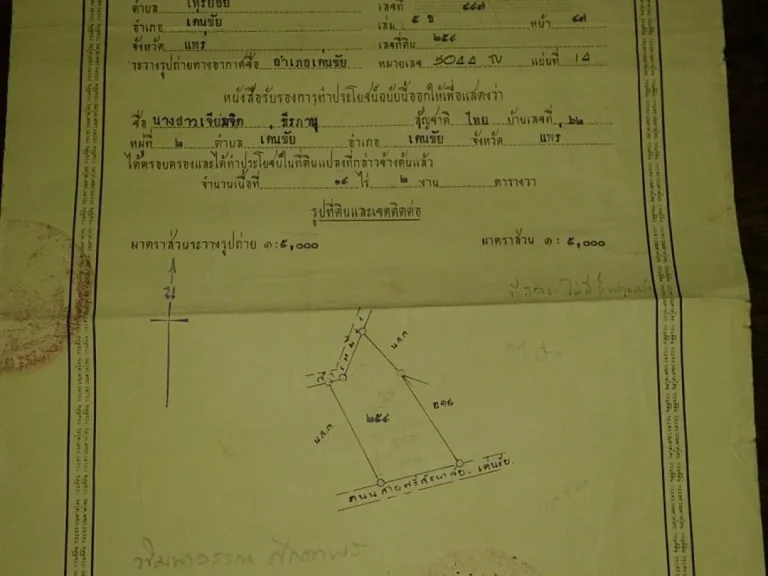 ตำบล ไทรย้อย เลขที่ ๔๘๗
อำเภอ เด่นชัย เล่ม ๕ ข หน้า ๔๗
จังหวัด แพร่ เลขที่ดิน ๒๕๔
ระวางรูปถ่ายทางอากาศชื่อ อำเภอเด่นชัย หมายเลข 5044 IV แผ่นที่ 14
หนังสือรับรองการทำประโยชน์ฉบับนี้ออกให้เพื่อแสดงว่า
ชื่อ นางสาวเจียมจิต ธีรภานุ สัญชาติ ไทย บ้านเลขที่ ๖๒
หมู่ที่ ๒ ตำบล เด่นชัย อำเภอ เด่นชัย จังหวัด แพร่
ได้ครอบครองและได้ทำประโยชน์ในที่ดินแปลงที่กล่าวข้างต้นแล้ว
จำนวนเนื้อที่ ๑๙ ไร่ ๒ งาน ตารางวา
รูปที่ดินและเขตติดต่อ
มาตราส่วนระวางรูปถ่าย ๑:๕,๐๐๐ มาตราส่วน ๑: ๕,๐๐๐
น
น.ส.๓
น.ส.๓
๒๕๔